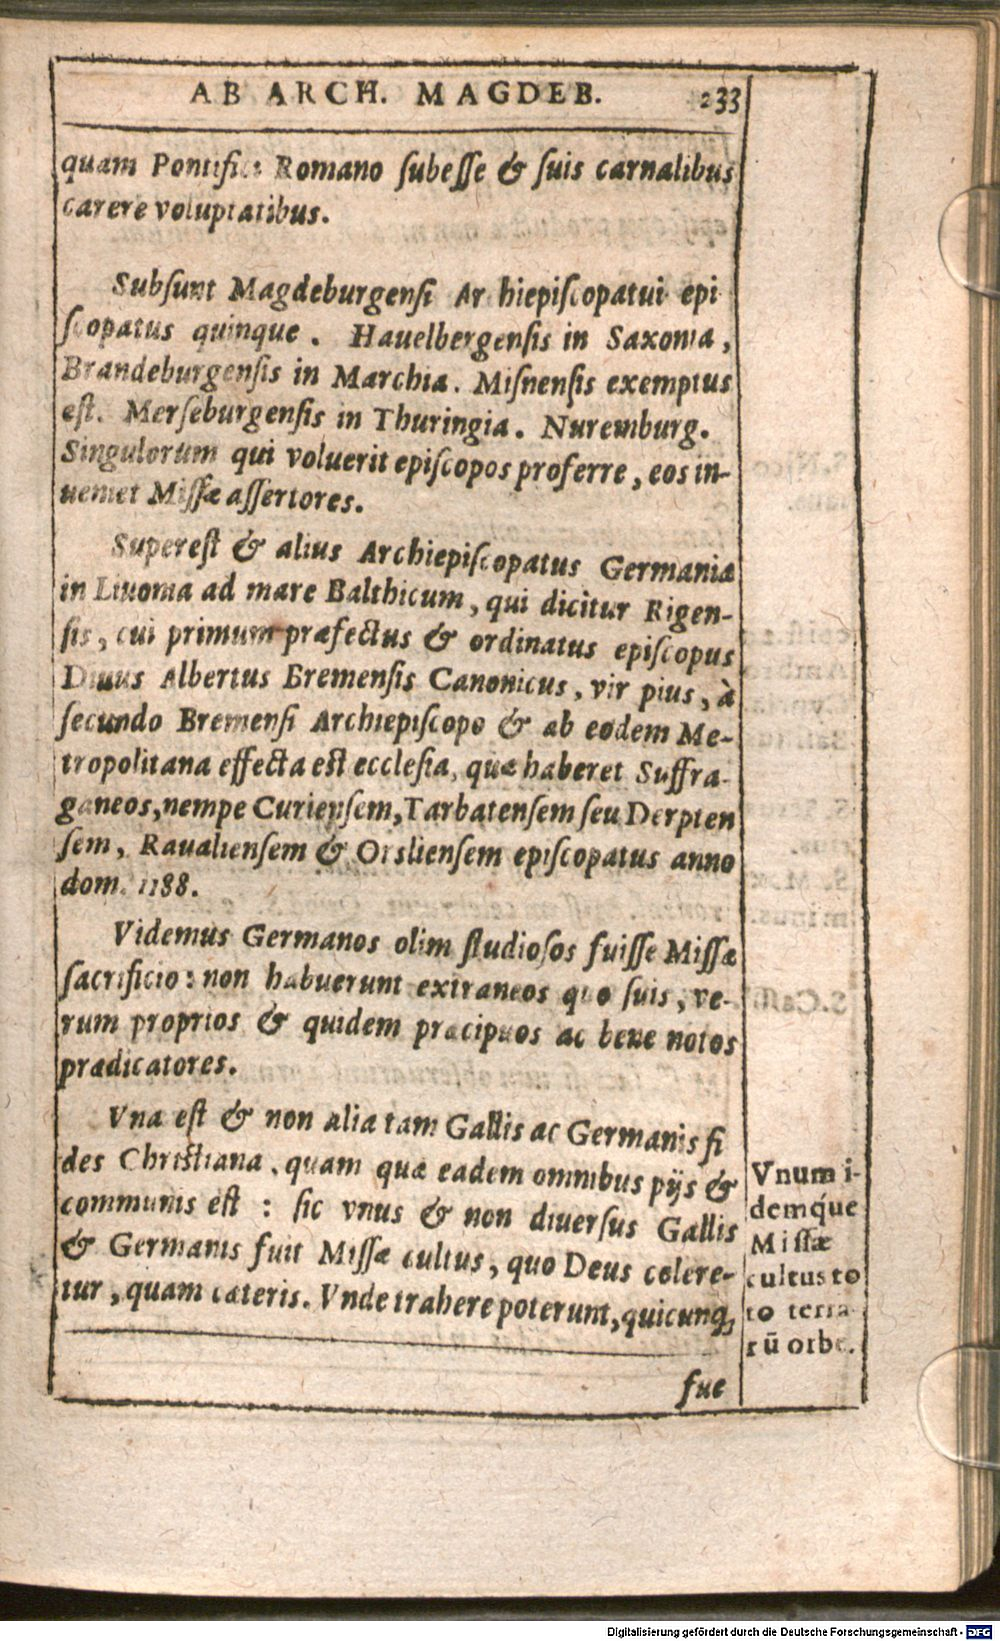 AB ARCH. MAGDEB. 233
quam Pontifici Romano ſubeſſe & ſuis carnalibus
carere voluptatibus.
Subſunt Magdeburgenſi Ar hiepiſcopatui epi
ſcopatus quinque. Hauelbergenſis in Saxonia,
Brandeburgenſis in Marchia. Miſnenſis exemptus
eſt. Merſeburgenſis in Thuringia. Nuremburg.
Singulorum qui voluerit epiſcopos proferre, eos in-
ueniet Miſſæ aſſertores.
Supereſt & alius Archiepiſcopatus Germaniæ
in Liuonia ad mare Balthicum, qui dicitur Rigen-
ſis, cui primum præfectus & ordinatus epiſcopus
Diuus Albertus Bremenſis Canonicus, vir pius, à
ſecundo Bremenſi Archiepiſcopo & ab eodem Me-
tropolitana effecta est eccleſia, quæ haberet Suffra-
ganeos, nempe Curienſem, Tarbatenſem ſeu Derpten
ſem, Raualienſem & Orslienſem epiſcopatus anno
dom. 1188.
Videmus Germanos olim ſtudioſos fuiſſe Miſſæ
ſacrificio: non habuerunt extraneos quo ſuis, ve-
rum proprios & quidem præcipuos ac bene notos
prædicatores.
Vna eſt & non alia tam Gallis ac Germanis fi
des Chriſtiana, quam quæ eadem omnibus pijs &
communis eſt : ſic vnus & non diuerſus Gallis
& Germanis fuit Miſſæ cultus, quo Deus celere-
tur, quam cæteris. Vnde trahere poterunt, quicunq;
fue
Vnum i-
demq́ue
Miſſæ
cultus to
to terra-
rū orbe.
Digitalisierung gefördert durch die Deutsche Forschungsgemeinschaft - DFG